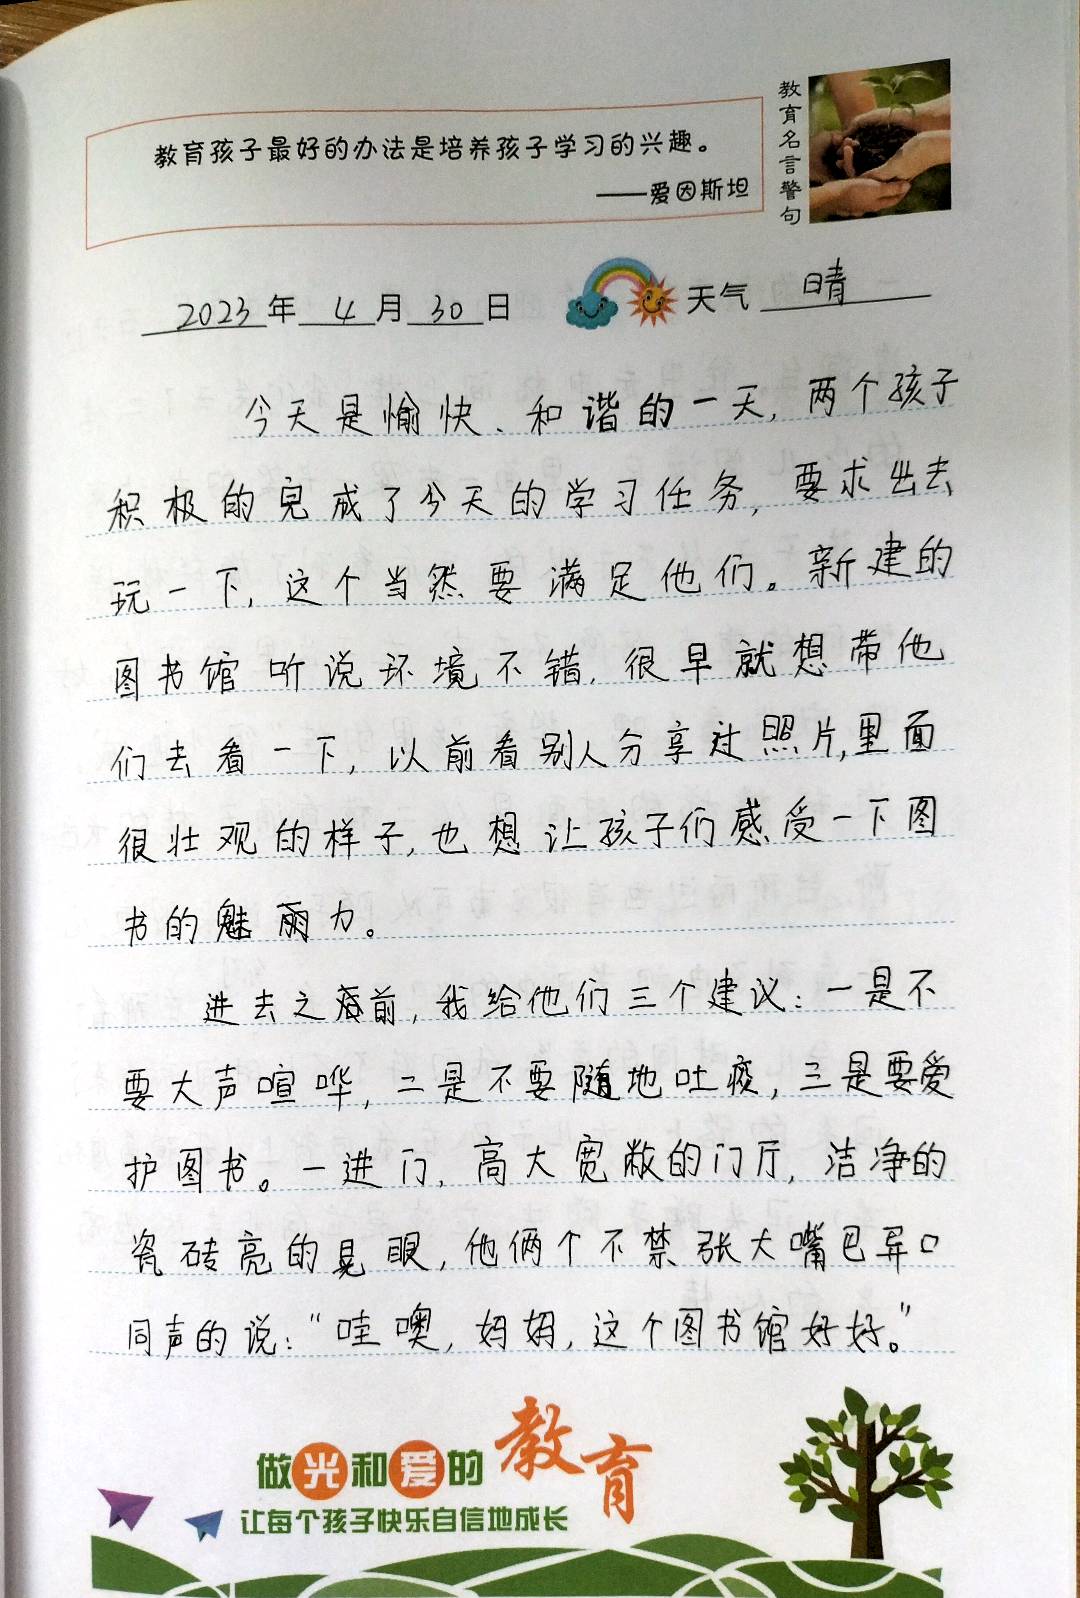 教育孩子最好的办法是培养孩子学习的兴趣。
——爱因斯坦
教育名言警句
2023年4月30日 天气 晴
今天是愉快、和谐的一天，两个孩子
积极的完成了今天的学习任务，要求出去
玩一下，这个当然要满足他们。新建的
图书馆听说环境不错，很早就想带他
们去看一下，以前看别人分享过照片，里面
很壮观的样子，也想让孩子们感受一下图
书的魅丽力。
进去之前，我给他们三个建议：一是不
要大声喧哗，二是不要随地吐痰，三是要爱
护图书。一进门，高大宽敞的门厅，洁净的
瓷砖亮的晃眼，他俩个不禁张大嘴巴异口
同声的说：“哇噢，妈妈，这个图书馆好好。”
做光和爱的教育
让每个孩子快乐自信地成长